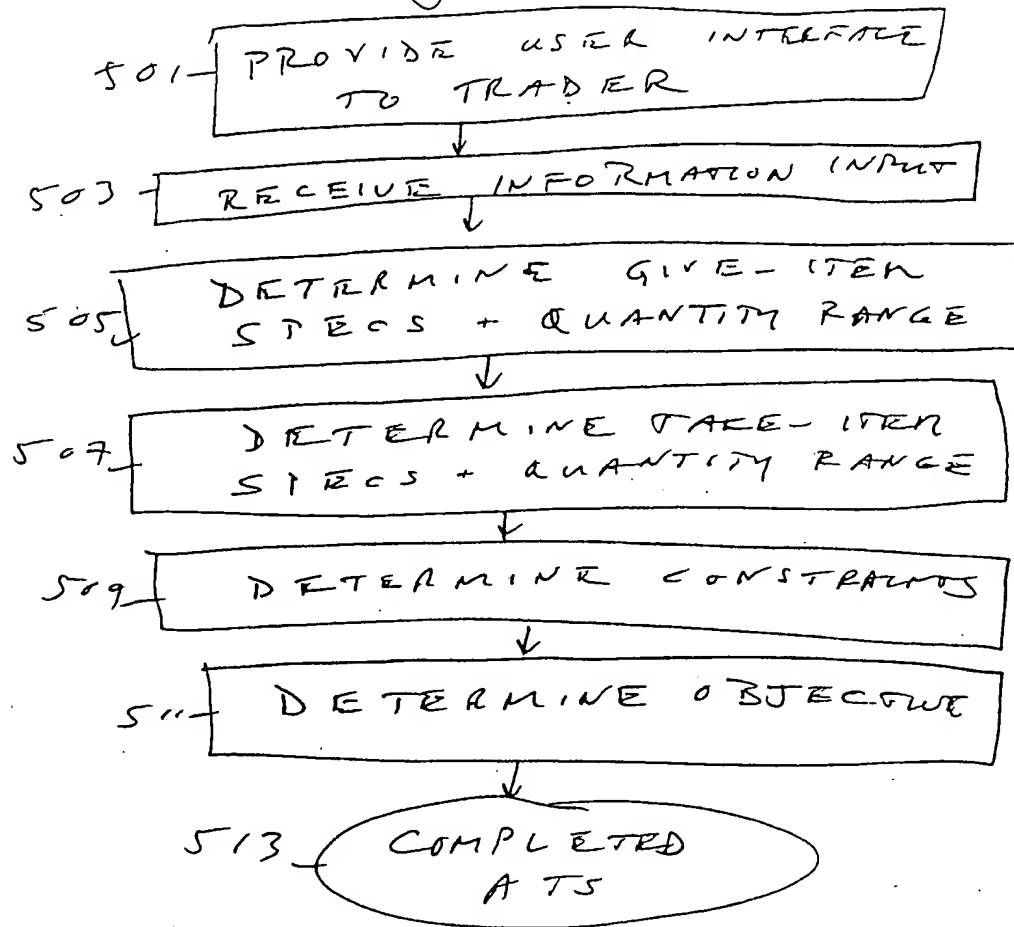 501 PROVIDE USER INTERFACE
TO TRADER
503 RECEIVE INFORMATION INPUT
505 DETERMINE GIVE-ITEM
SPECS + QUANTITY RANGE
507 DETERMINE TAKE-ITEM
SPECS + QUANTITY RANGE
509 DETERMINE CONSTRAINTS
511 DETERMINE OBJECTIVE
513 COMPLETED
ATS